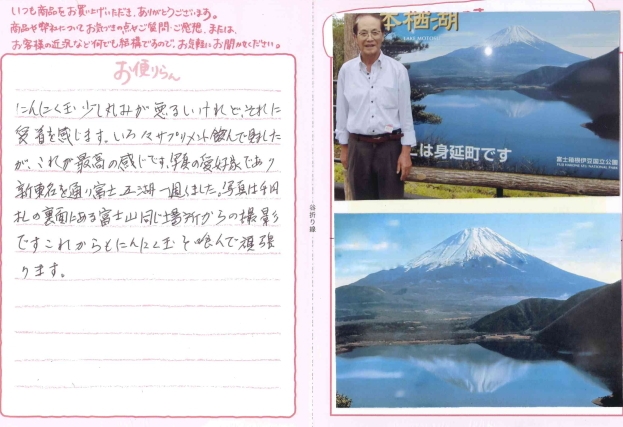 いつも商品をお買い上げいただき、ありがとうございます。
商品や弊社についてお気づきの点やご質問・ご発想、または、
お客様の近況など何でも結構ですので、お気軽にお聞かせください。
お便りらん
にんにく玉少し丸みが悪るいけれど、それに
愛着を感じます。いろ々サプリメント飲んで来ました
が、これが最高の感じです。写真の愛好家であり
新東名を通り富士五湖一週しました。写真は千円
札の裏面にある富士山同じ場所からの撮影
ですこれからもにんにく玉を飲んで頑張
ります。
谷折り線
本栖湖
LAKE MOTOSU
は身延町です
富士箱根伊豆国立公園
FUJI-HAKONE-IZU NATIONAL PARK